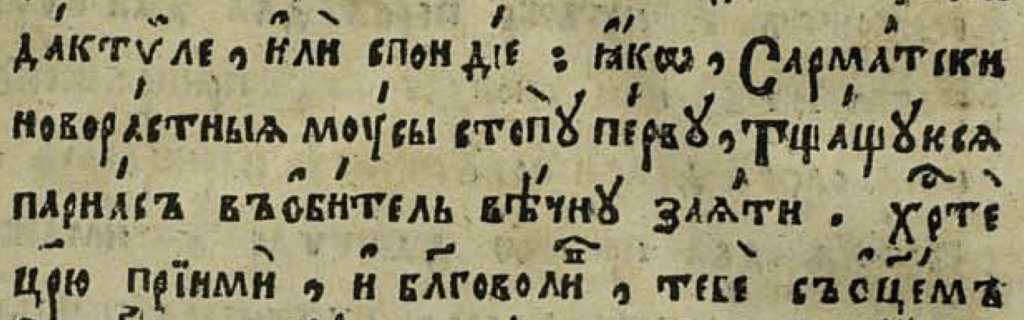 да́ктѷле , и҆лѝ спондїе : ꙗ҆́кѡ , Сарма́тски
новора́стныѧ моу́сы стопꙋ̀ пе́рвꙋ , Тща́щꙋюсѧ
парна́съ въѡ҆би́тель вѣ́чнꙋ заѧ́ти . хрⷭ҇тѐ
цр҃ю прїимѝ , и҆ бл҃говолиⷫ҇ , тебѐ съѻ҆ц҃е́мъ